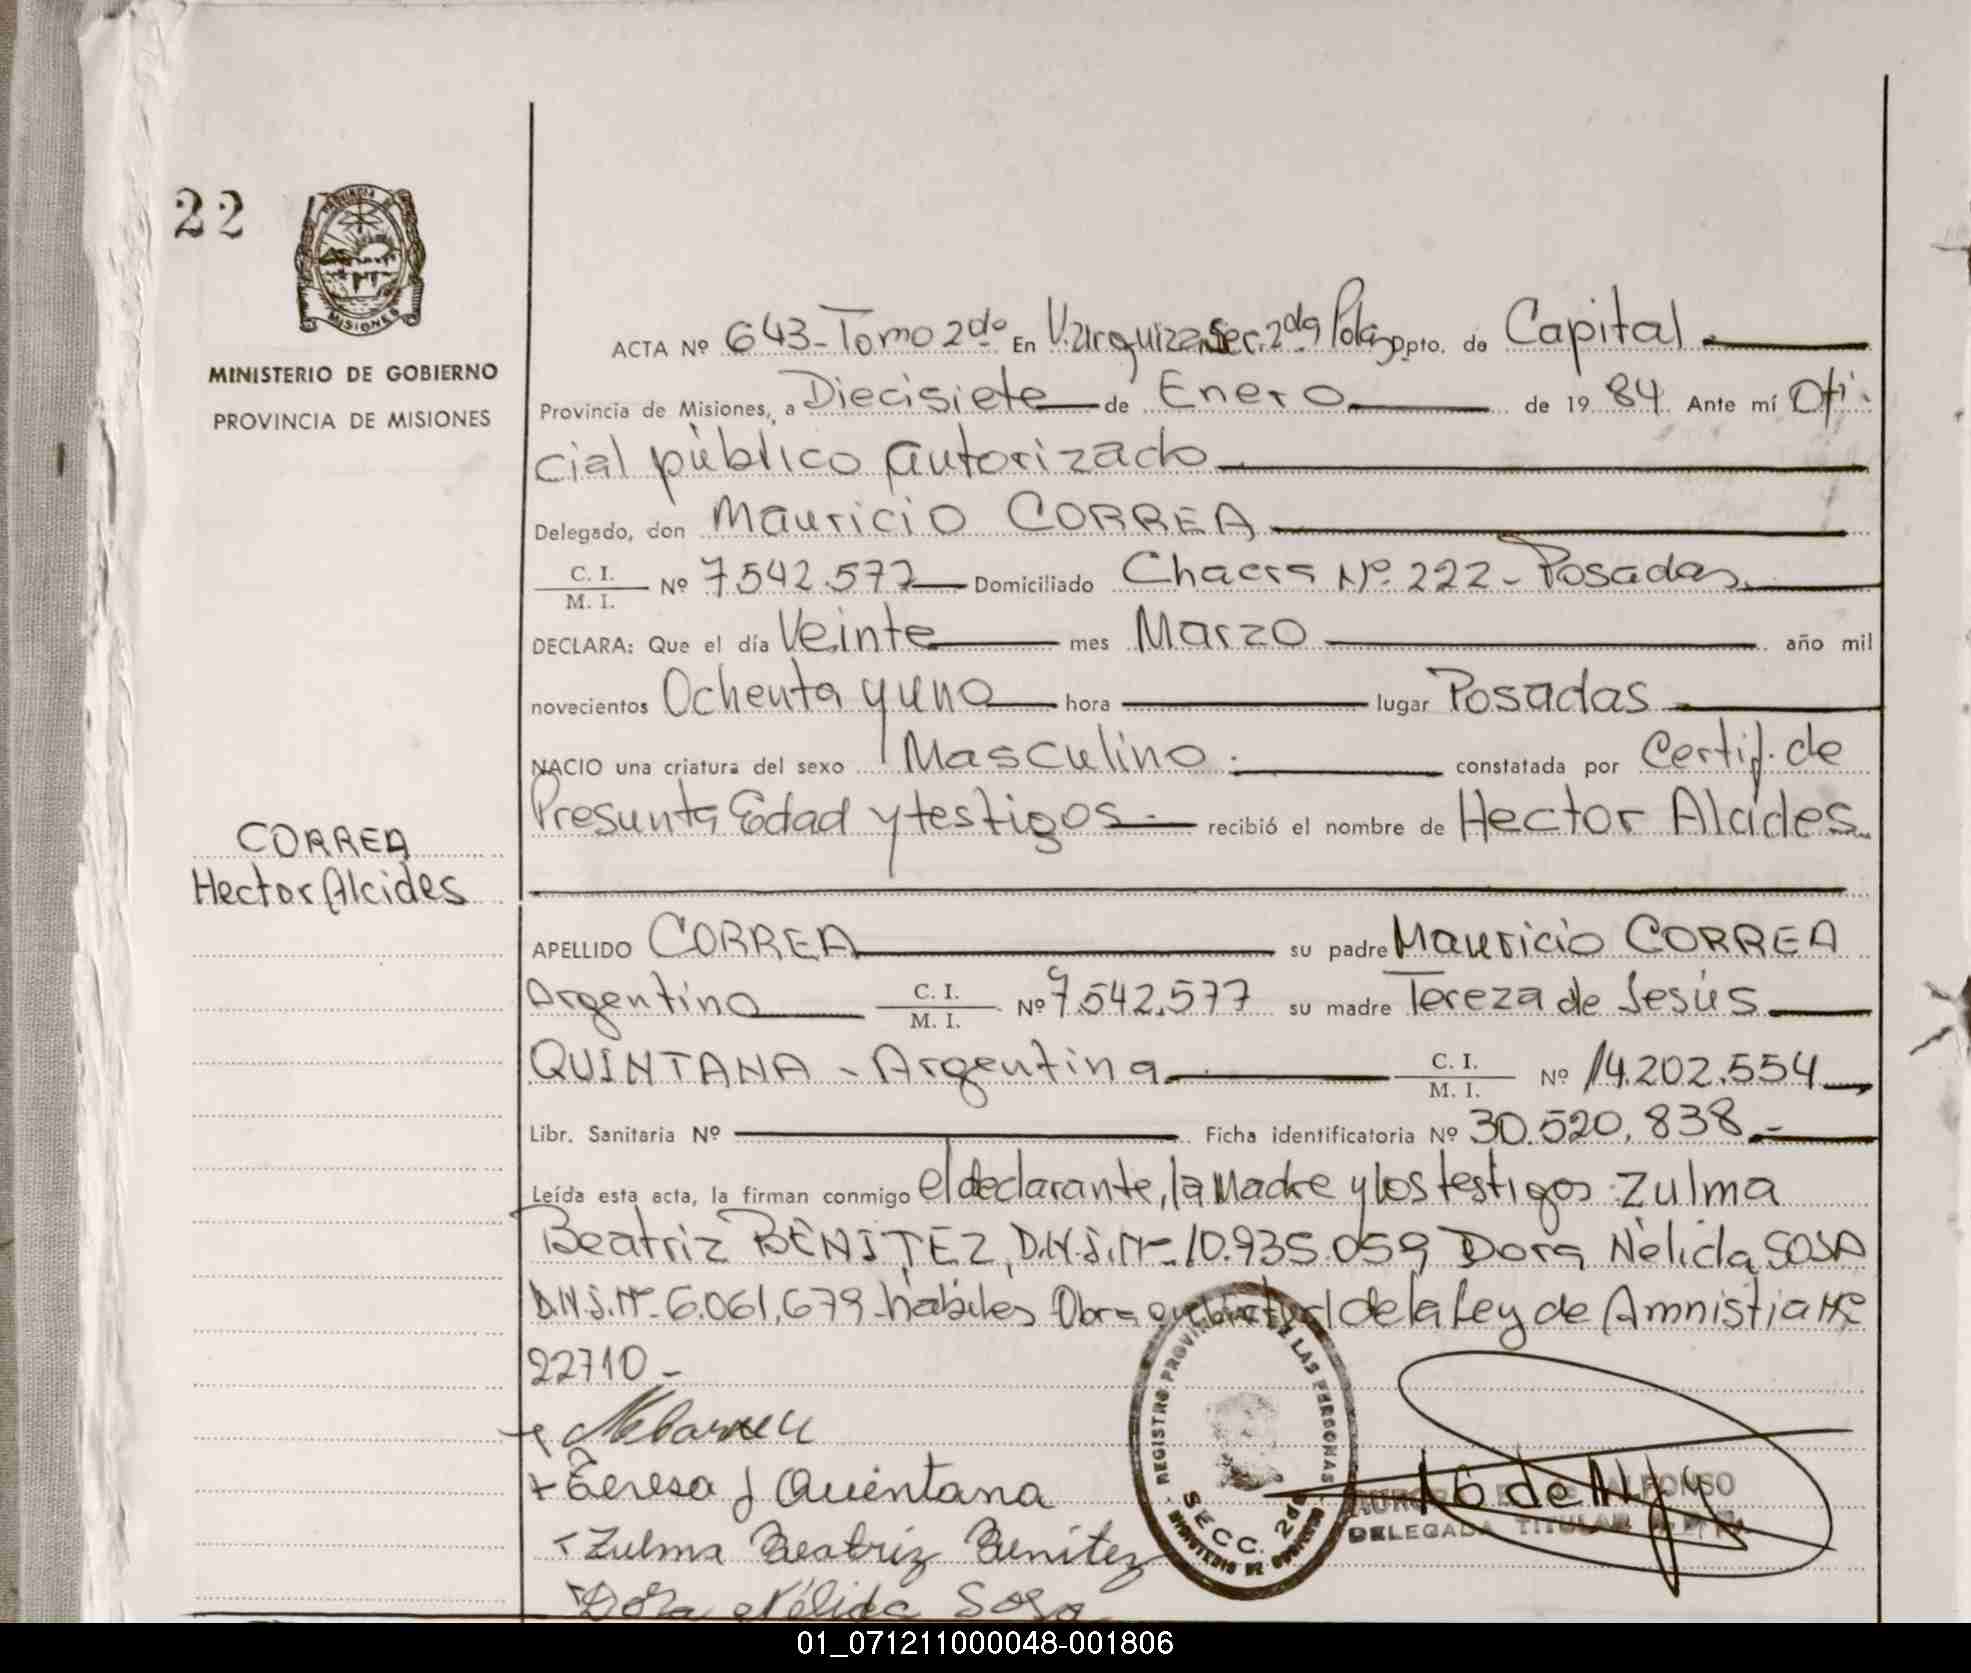 22
PROVINCIA DE
MISIONES
MINISTERIO DE GOBIERNO
PROVINCIA DE MISIONES
ACTA Nº 643-Tomo 2do En V.Urquiza Sec. 2da Pdas Dpto. de Capital
Provincia de Misiones, a Diecisiete de Enero de 1984 Ante mí Ofi-
cial público autorizado
Delegado, don Mauricio CORREA
C. I.
M. I. Nº 7.542.577 Domiciliado Chacra Nº 222 - Posadas.
DECLARA: Que el día Veinte mes Marzo año mil
novecientos Ochenta y uno hora lugar Posadas
NACIO una criatura del sexo Masculino.- constatada por Certif. de
Presunta Edad y testigos.- recibió el nombre de Hector Alcides
CORREA
Hector Alcides
APELLIDO CORREA su padre Mauricio CORREA
Argentino C. I.
M. I. Nº 7.542.577 su madre Tereza de Jesús
QUINTANA - Argentina C. I.
M. I. Nº 14.202.554
Libr. Sanitaria Nº Ficha identificatoria Nº 30.520.838.-
Leída esta acta, la firman conmigo el declarante, la Madre y los testigos Zulma
Beatriz BENITEZ, D.N.I. Nº 10.935.059 Dora Nélida SOSA
D.N.I. Nº 6.061.679 hábiles Obra en virtud de la Ley de Amnistia Nº
22710.-
Teresa J Quintana
Zulma Beatriz Benitez
Dora Nélida Sosa
REGISTRO PROVINCIAL DE LAS PERSONAS
SECC. 2da
MINISTERIO DE GOBIERNO
ALFONSO
DELEGADA TITULAR
01_071211000048-001806